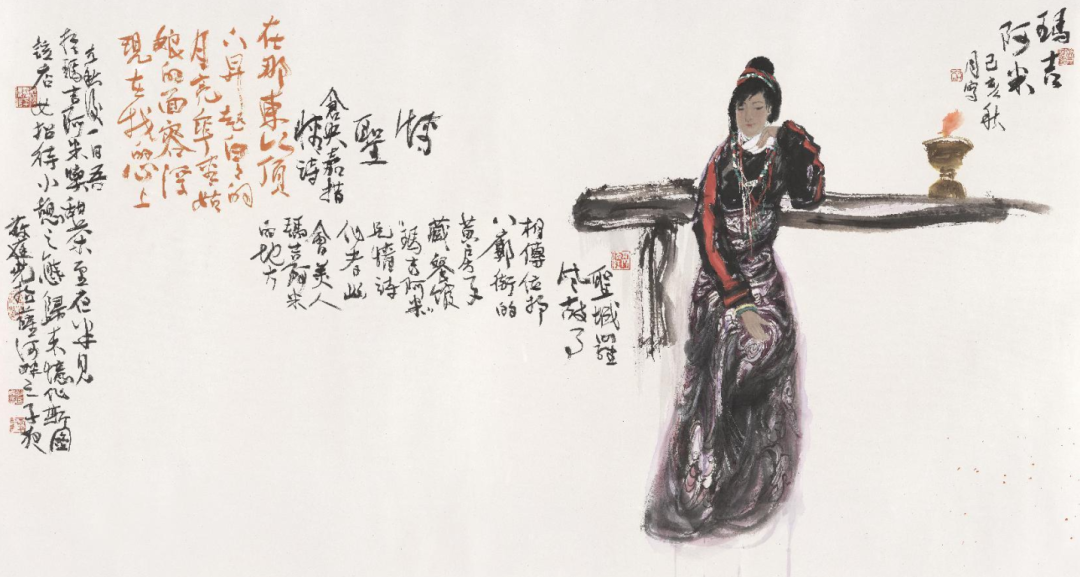 瑪吉
阿米
己亥秋
月寫
聖城
相傳位於
八廓街的
黃房子
藏餐館
"瑪吉阿米"
是情詩
作者此
會美人
瑪吉阿米
的地方
情
聖
倉央嘉措
情詩
在那東山頂
上昇起白白的
月亮年輕姑
娘的面容浮
現在我的心上
秋後一日吾
於瑪吉阿米喫甜茶至夜半見
該店女招待小憩之態歸來憶作斯圖
薩河畔之子夜